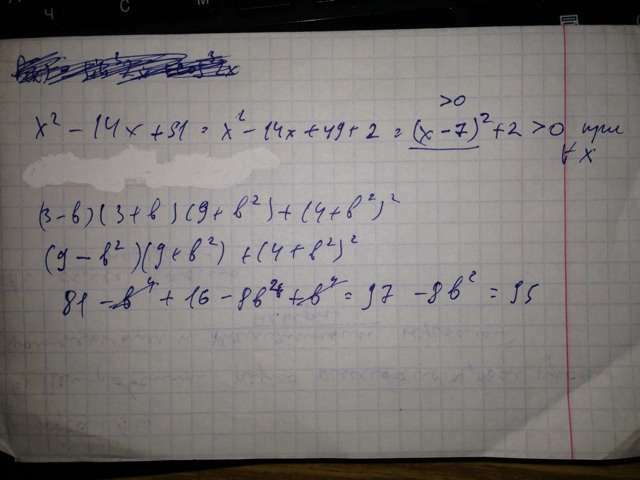 x² - 14x + 51 = x² - 14x + 49 + 2 = (x - 7)² + 2 > 0 при ∀ x
>0
(3 - b)(3 + b)(9 + b²) + (4 + b²)²
(9 - b²)(9 + b²) + (4 + b²)²
81 - b⁴ + 16 - 8b² + b⁴ = 97 - 8b² = 95